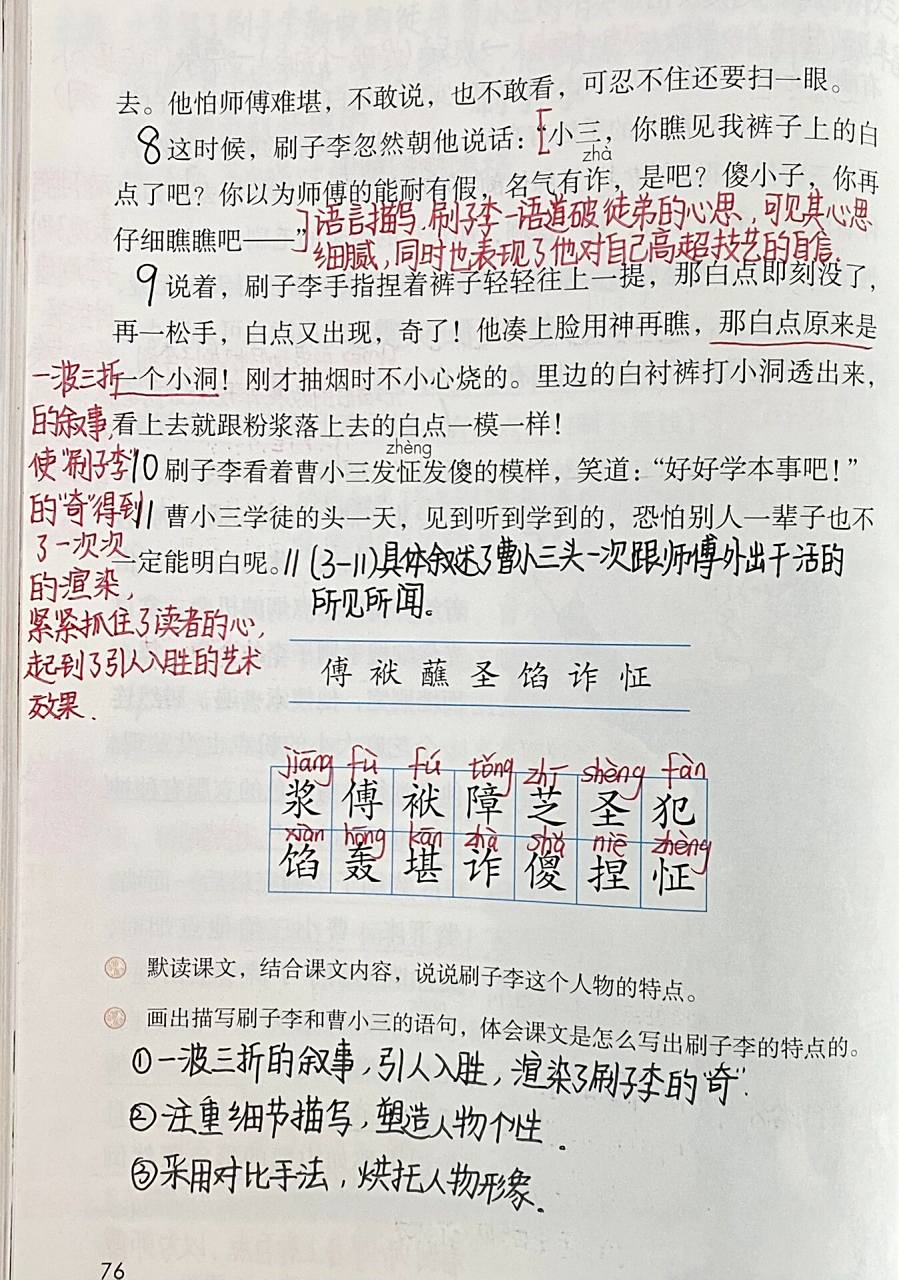 去。他怕师傅难堪，不敢说，也不敢看，可忍不住还要扫一眼。
8 这时候，刷子李忽然朝他说话：[“小三，你瞧见我裤子上的白
zhà
点了吧？你以为师傅的能耐有假，名气有诈，是吧？傻小子，你再
仔细瞧瞧吧——”]
语言描写.刷子李一语道破徒弟的心思，可见其心思
细腻，同时也表现了他对自己高超技艺的自信.
9 说着，刷子李手指捏着裤子轻轻往上一提，那白点即刻没了，
再一松手，白点又出现，奇了！他凑上脸用神再瞧，那白点原来是
一个小洞！刚才抽烟时不小心烧的。里边的白衬裤打小洞透出来，
看上去就跟粉浆落上去的白点一模一样！
zhèng
10 刷子李看着曹小三发怔发傻的模样，笑道：“好好学本事吧！”
11 曹小三学徒的头一天，见到听到学到的，恐怕别人一辈子也不
一定能明白呢。// (3-11)具体叙述了曹小三头一次跟师傅外出干活的
所见所闻。
一波三折
的叙事，
使“刷子李”
的“奇”得到
了一次次
的渲染，
紧紧抓住了读者的心，
起到了引人入胜的艺术
效果.
傅 袱 蘸 圣 馅 诈 怔
jiāng fù fú tǒng zhī shèng fàn
浆 傅 袱 障 芝 圣 犯
xiàn hōng kān zhà shǎ niē zhèng
馅 轰 堪 诈 傻 捏 怔
默读课文，结合课文内容，说说刷子李这个人物的特点。
画出描写刷子李和曹小三的语句，体会课文是怎么写出刷子李的特点的。
①一波三折的叙事，引人入胜，渲染了刷子李的“奇”.
②注重细节描写，塑造人物个性.
③采用对比手法，烘托人物形象.
76